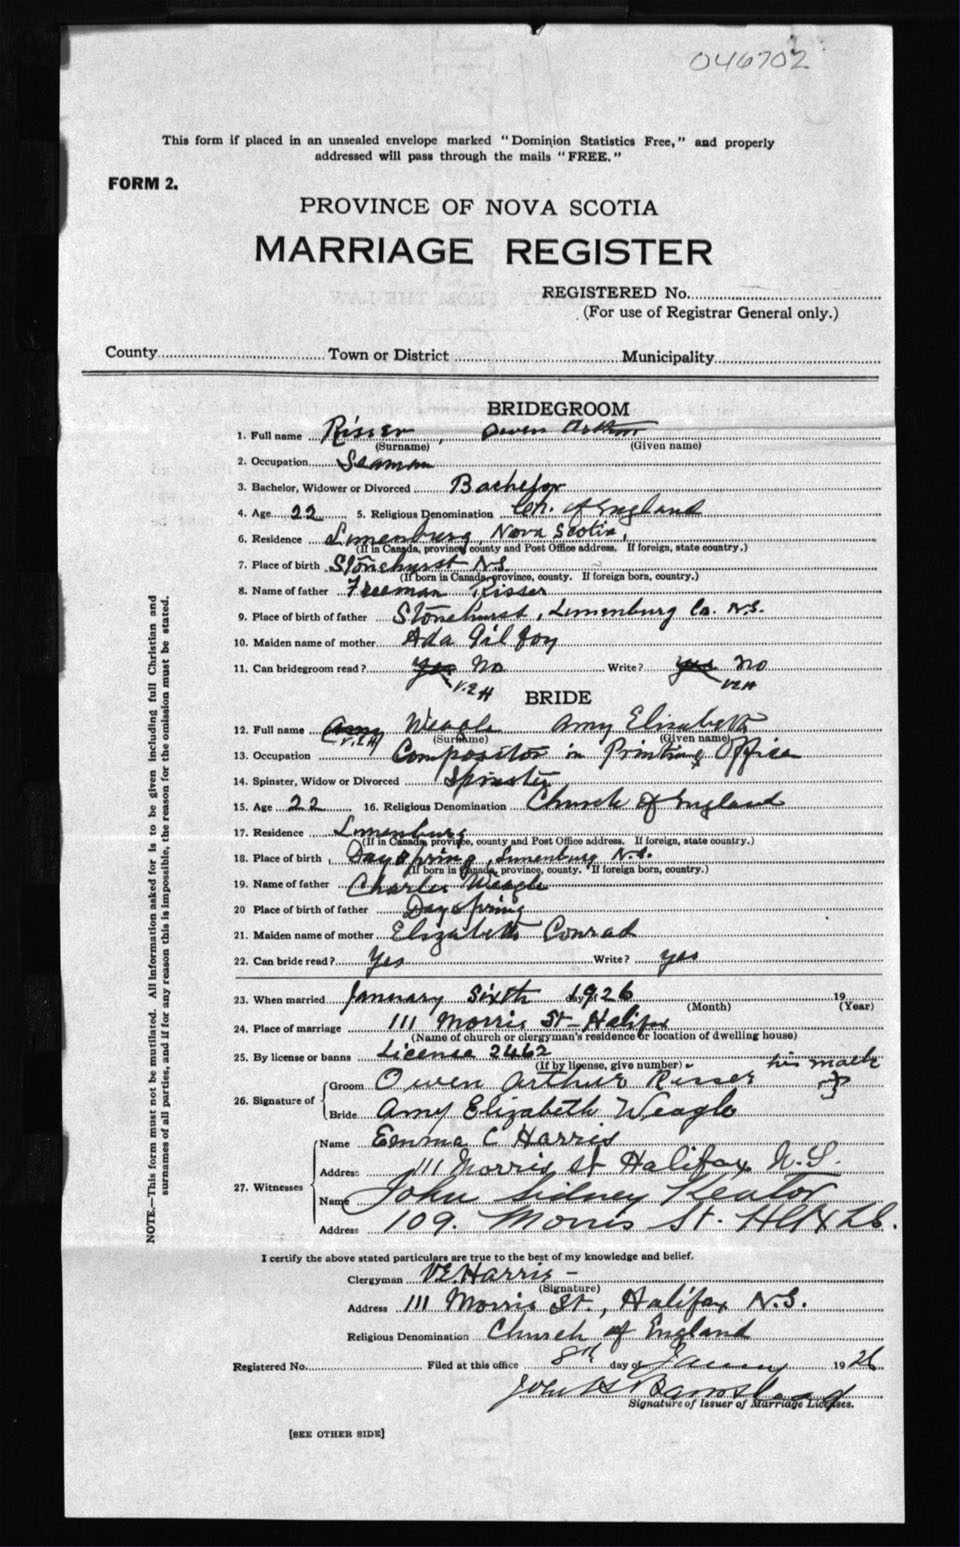 046702
This form if placed in an unsealed envelope marked "Dominion Statistics Free," and properly
addressed will pass through the mails "FREE."
FORM 2.
PROVINCE OF NOVA SCOTIA
MARRIAGE REGISTER
REGISTERED No.
(For use of Registrar General only.)
County Town or District Municipality
BRIDEGROOM
1. Full name Risser, Owen Arthur
(Surname) (Given name)
2. Occupation Seaman
3. Bachelor, Widower or Divorced Bachelor
4. Age 22 5. Religious Denomination Ch. of England
6. Residence Lunenburg, Nova Scotia,
(If in Canada, province, county and Post Office address. If foreign, state country.)
7. Place of birth Stonehurst N.S.
(If born in Canada, province, county. If foreign born, country.)
8. Name of father Freeman Risser
9. Place of birth of father Stonehurst, Lunenburg Co. N.S.
10. Maiden name of mother Ada Gilfoy
11. Can bridegroom read? yes No Write? yes No
V.E.H V.E.H
BRIDE
12. Full name Amy Weagle Amy Elizabeth
V.E.H (Surname) (Given name)
13. Occupation Compositor in Printing Office
14. Spinster, Widow or Divorced Spinster
15. Age 22 16. Religious Denomination Church of England
17. Residence Lunenburg
(If in Canada, province, county and Post Office address. If foreign, state country.)
18. Place of birth Dayspring, Lunenburg N.S.
(If born in Canada, province, county. If foreign born, country.)
19. Name of father Charles Weagle
20 Place of birth of father Dayspring
21. Maiden name of mother Elizabeth Conrad
22. Can bride read? Yes Write? yes
23. When married January Sixth day of 1926 19
(Month) (Year)
24. Place of marriage 111 Morris St - Halifax
(Name of church or clergyman's residence or location of dwelling house)
25. By license or banns License 2462
(If by license, give number) his mark
26. Signature of Groom Owen Arthur Risser
Bride Amy Elizabeth Weagle
27. Witnesses Name Emma C Harris
Address 111 Morris St Halifax N.S.
Name John Sidney Keator
Address 109. Morris St.
I certify the above stated particulars are true to the best of my knowledge and belief.
Clergyman V.E. Harris -
(Signature)
Address 111 Morris St., Halifax N.S.
Religious Denomination Church of England
Registered No. Filed at this office 8th day of January 1926
John H Barnstead
Signature of Issuer of Marriage Licenses.
[SEE OTHER SIDE]
NOTE.—This form must not be mutilated. All information asked for is to be given including full Christian and
surnames of all parties, and if for any reason this is impossible, the reason for the omission must be stated.